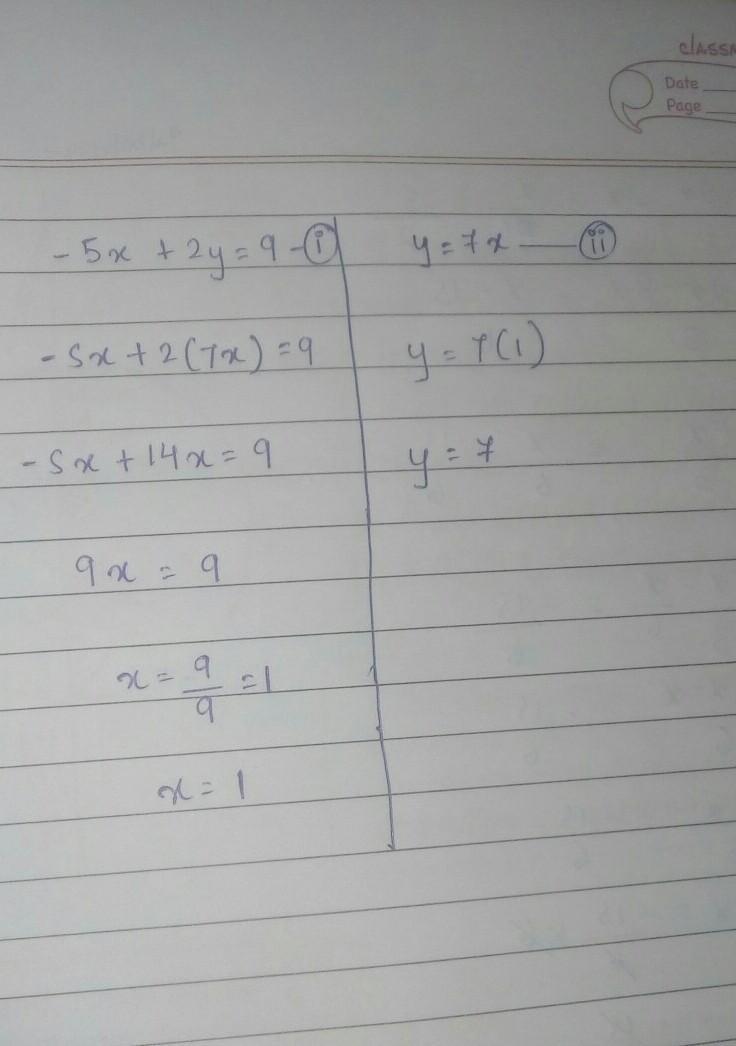 Date
Page
- 5x + 2y = 9 - (i)
- 5x + 2(7x) = 9
- 5x + 14x = 9
9x = 9
x = 9/9 = 1
x = 1
y = 7x — (ii)
y = 7(1)
y = 7